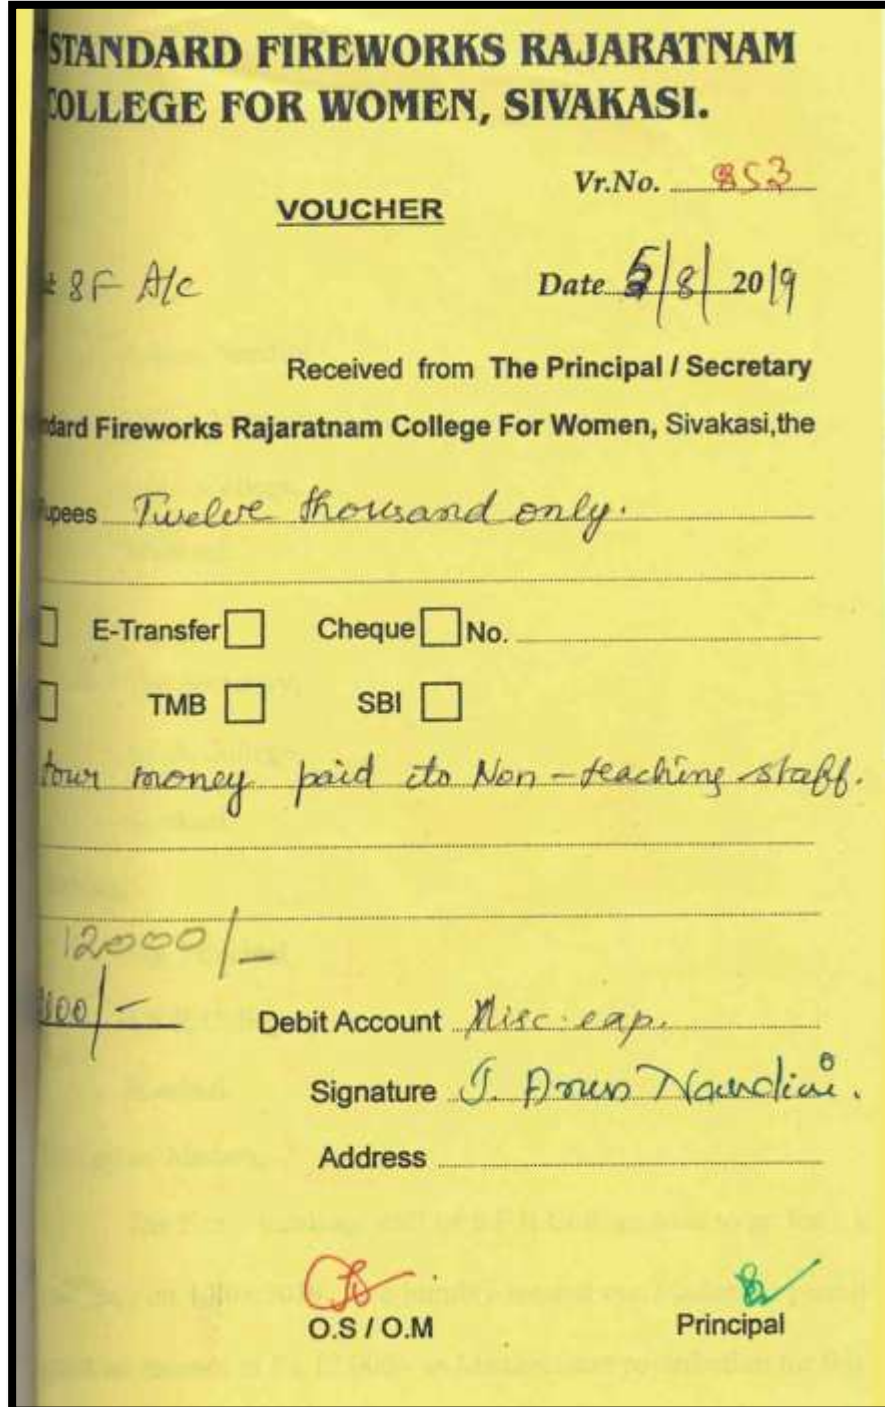 STANDARD FIREWORKS RAJARATNAM
COLLEGE FOR WOMEN, SIVAKASI.
Vr.No. 853
VOUCHER
8F A/c Date 5/8/2019
Received from The Principal / Secretary
Fireworks Rajaratnam College For Women, Sivakasi,the
Rupees Twelve thousand only.
E-Transfer Cheque No.
TMB SBI
tour money paid to Non-teaching staff.
12000/-
Debit Account Misc. exp.
Signature J. Arun Nandini.
Address
O.S / O.M Principal